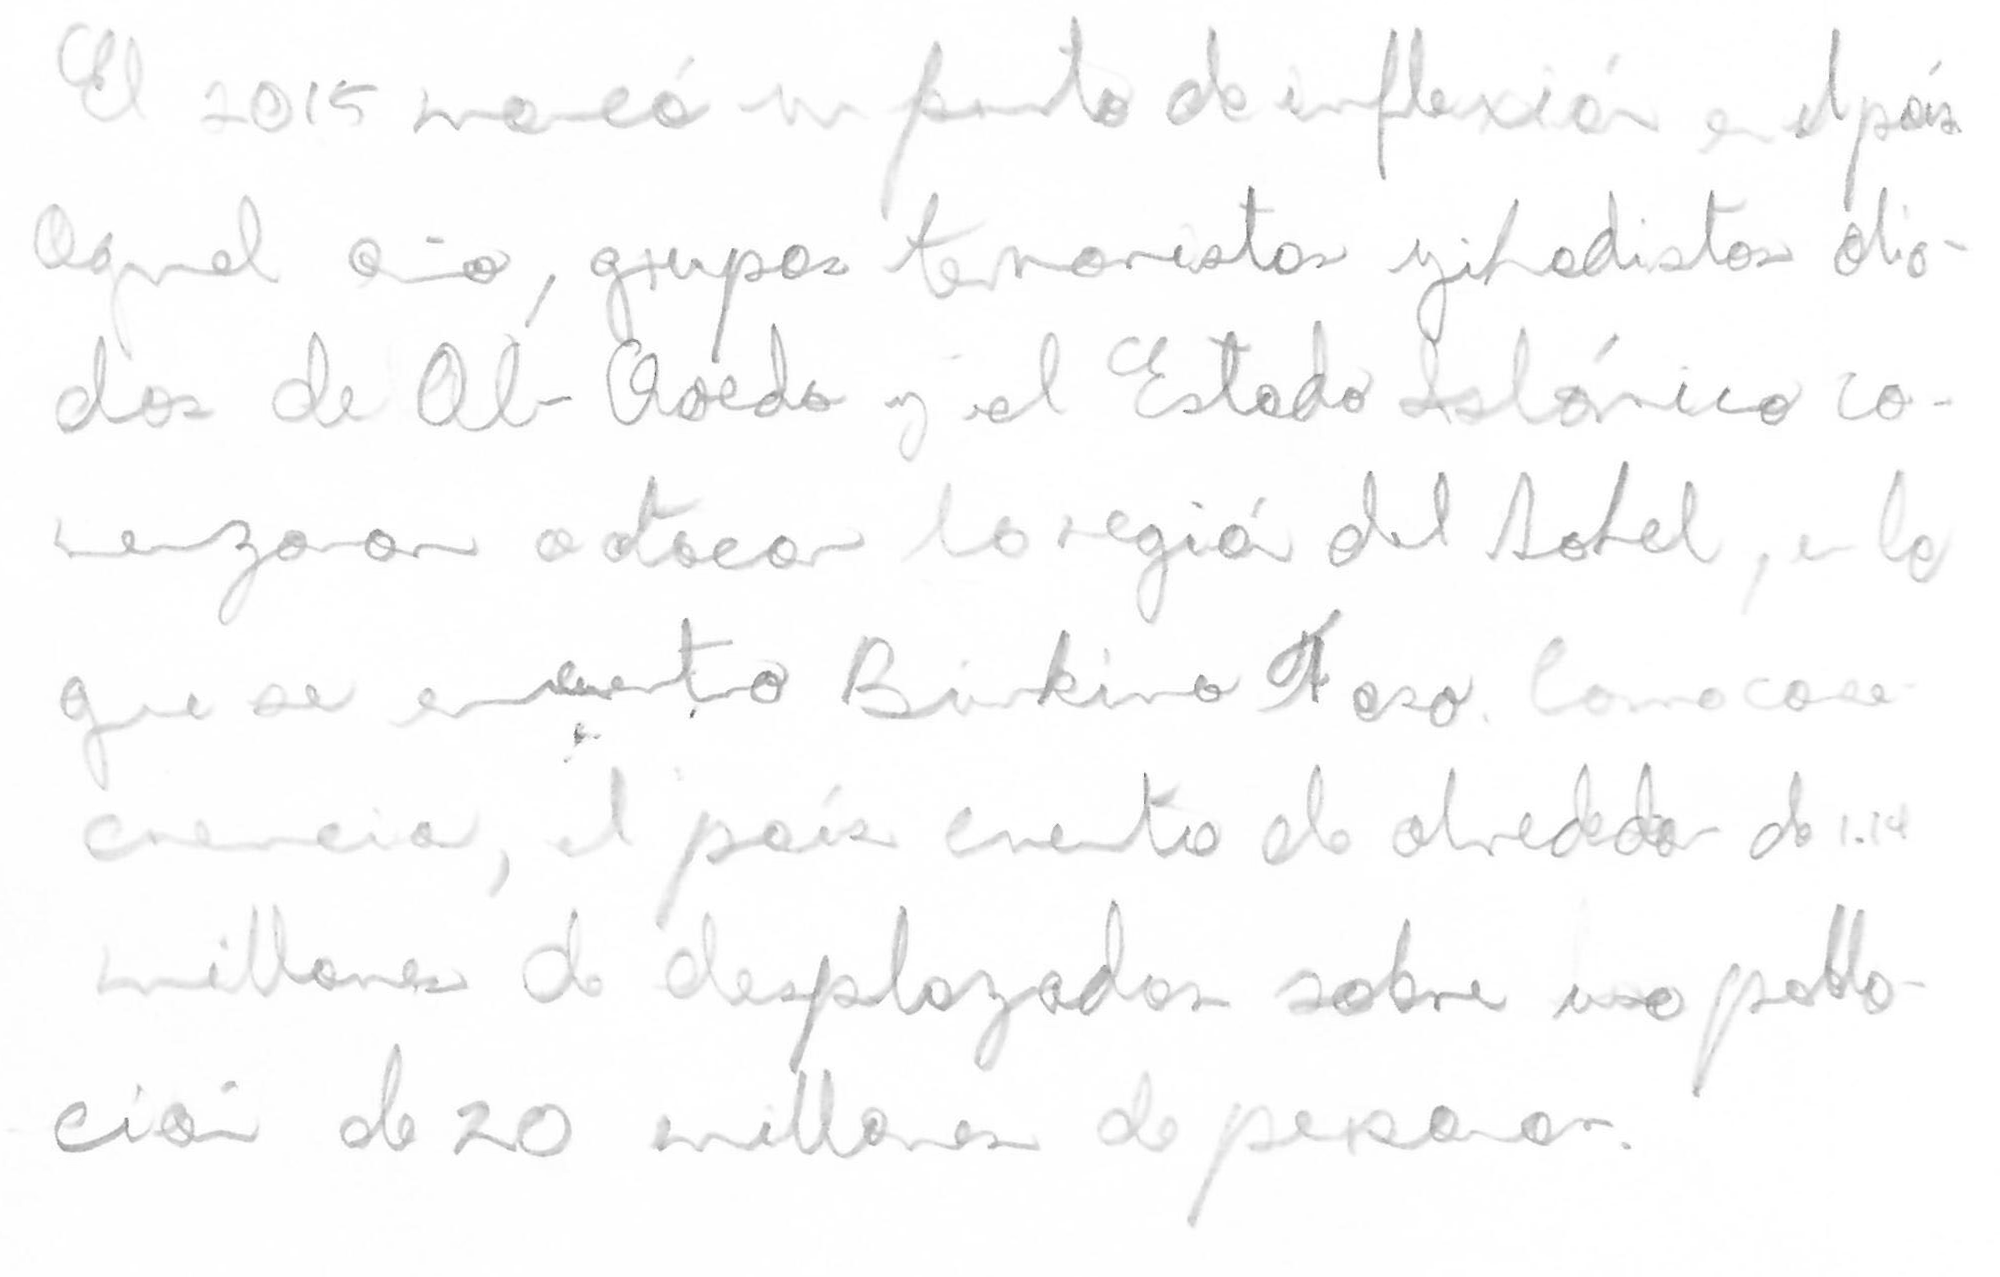 El 2015 marcó un punto de inflexión en el país
Aquel año, grupos terroristas yihadistas alia-
dos de Al-Qaeda y el Estado Islámico co-
menzaron a atacar la región del Sahel, en la
que se encuentra Burkina Faso. Como conse-
cuencia, el país cuenta de alrededor de 1.14
millones de desplazados sobre una pobla-
ción de 20 millones de personas.